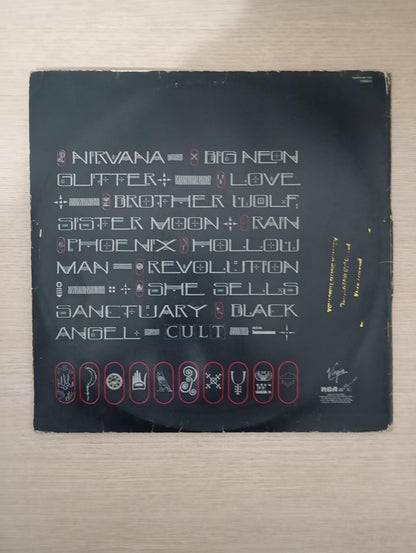 NIRVANA BIG NEON
GLITTER LOVE
BROTHER WOLF,
SISTER MOON RAIN
PHOENIX HOLLOW
MAN REVOLUTION
SHE SELLS
SANCTUARY BLACK
ANGEL CULT
Virgin
RCA